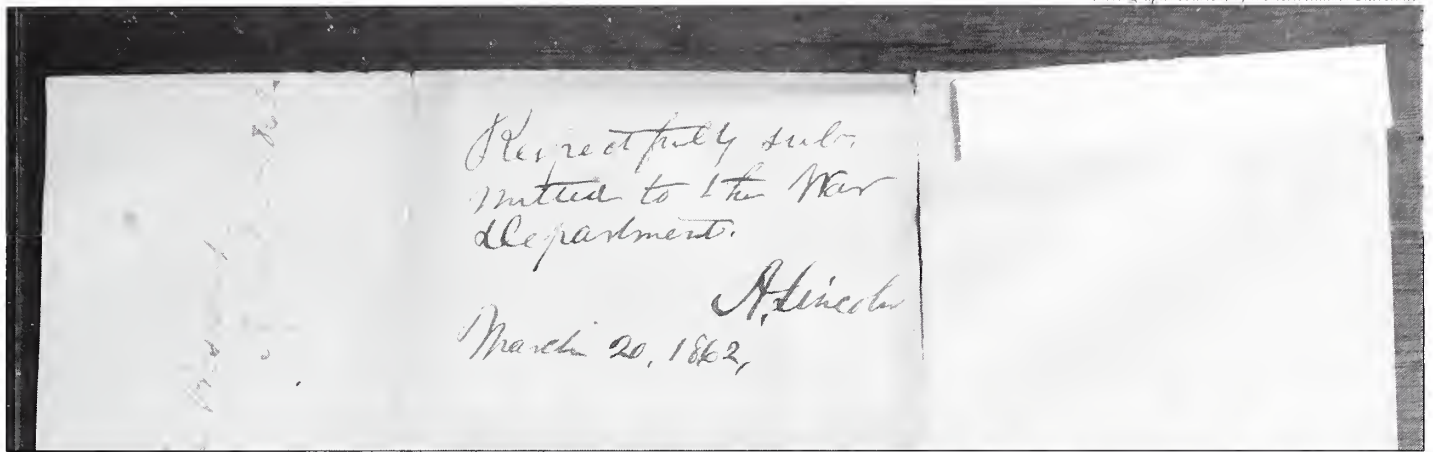 Respectfully sub-
mitted to the War
Department.
A. Lincoln
March 20, 1862,